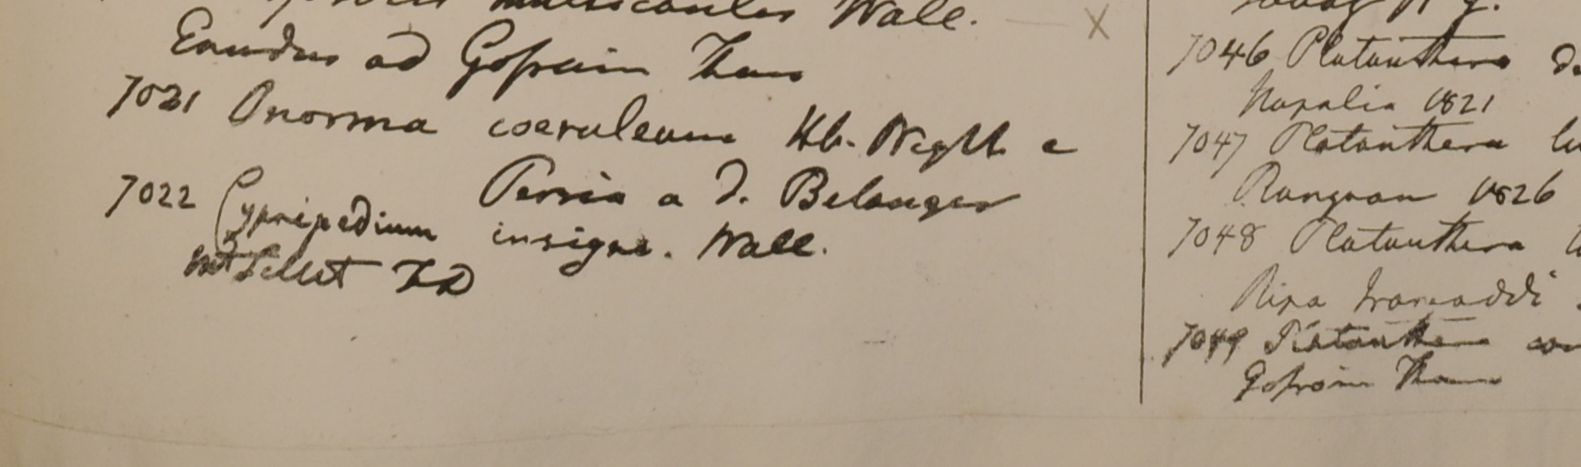 multicaulis Wall. X
Eundus ad Gossain Than
7021 Onosma coeruleum Hb. Wight e
Persia a d. Belanger
7022 Cypripedium insigne. Wall.
Mt Sillet FD
7046 Platanthera
Napalia 1821
7047 Platanthera
Rangoon 1826
7048 Platanthera
Ripa Irawaddi
7049 Platanthera
Gossain Than